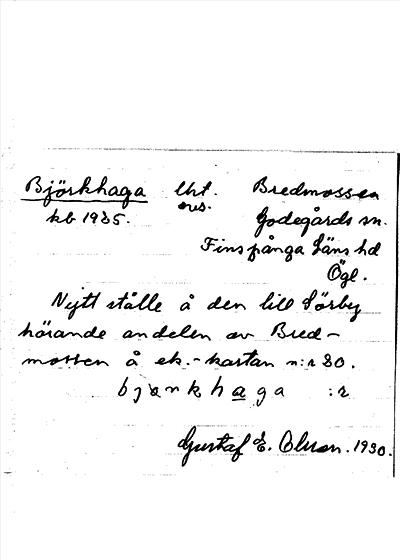 Björkhaga lht. Bredmossen
kb 1925. ovs. Godegårds sn.
Finspånga läns hd
Ögl.
Nytt ställe å den till Sörby
hörande andelen av Bred-
mossen å ek.-kartan n:r 80.
bjərkhaga :r
Gustaf E. Olsson. 1930.